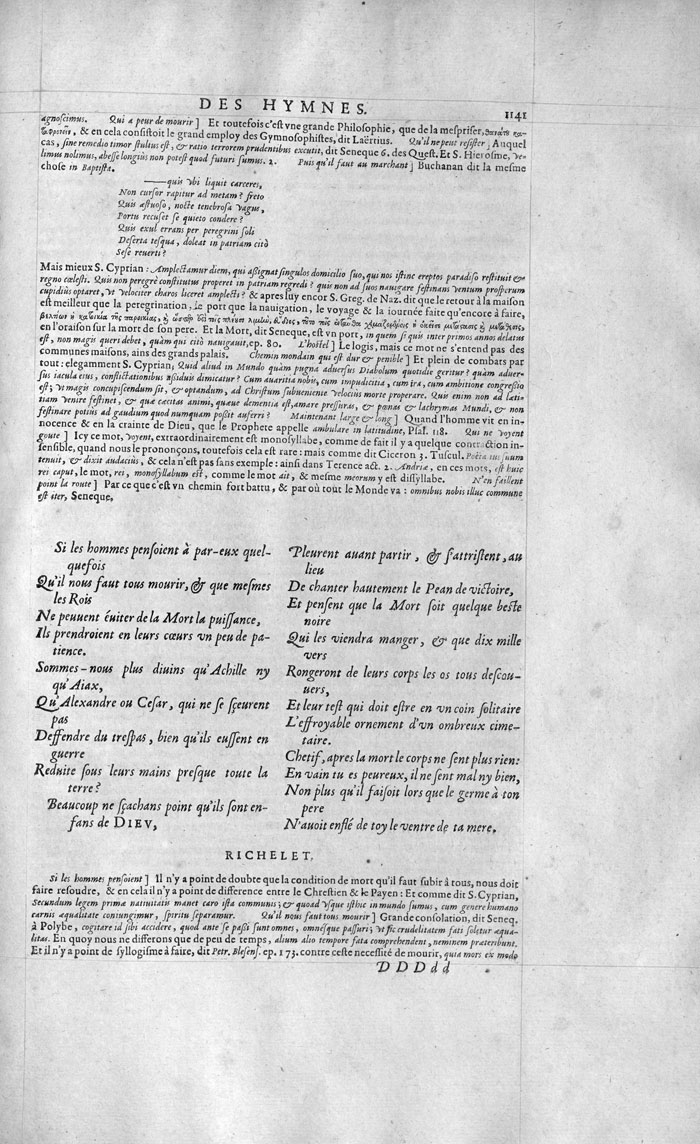 DES HYMNES. 1141
agnoscimus. Qui a peur de mourir] Et toutefois c'est vne grande Philosophie, que de la mespriser,
& en cela consistoit le grand employ des Gymnosophistes, dit Laërtius. Qu'il ne peut resister] Auquel
cas, sine remedio timor stultus est, & ratio terrorem prudentibus excutit, dit Seneque 6. des Quest. Et S. Hierosme, ve-
limus nolimus, abesse longius non potest quod futuri sumus. 2. Puis qu'il faut au marchant] Buchanan dit la mesme
chose in Baptista.
——quis vbi liquit carceres,
Non cursor rapitur ad metam? freto
Quis æstuoso, nocte tenebrosa vagus,
Portu recuset se quieto condere?
Quis exul errans per peregrini soli
Deserta tesqua, doleat in patriam citò
Sese reuerti?
Mais mieux S. Cyprian: Amplectamur diem, qui assignat singulos domicilio suo, qui nos istinc ereptos paradiso restituit &
regno cœlesti. Quis non peregrè constitutus properet in patriam regredi? quis non ad suos nauigare festinans ventum prosperum
cupidiùs optaret, vt velociter charos liceret amplecti? & apres luy encor S. Greg. de Naz. dit que le retour à la maison
est meilleur que la peregrination, le port que la nauigation, le voyage & la iournée faite qu'encore à faire,
en l'oraison sur la mort de son pere. Et la Mort, dit Seneque, est vn port, in quem si quis inter primos annos delatus
est, non magis queri debet, quàm qui citò nauigauit, ep. 80. L'hostel] Le logis, mais ce mot ne s'entend pas des
communes maisons, ains des grands palais. Chemin mondain qui est dur & penible] Et plein de combats par
tout: elegamment S. Cyprian, Quid aliud in Mundo quàm pugna aduersus Diabolum quotidie geritur? quàm aduer-
sus iacula eius, conflictationibus assiduis dimicatur? Cum auaritia nobis, cum impudicitia, cum ira, cum ambitione congressio
est; vt magis concupiscendum sit, & optandum, ad Christum subueniente velocius morte properare. Quis enim non ad læti-
tiam venire festinet, & quæ cæcitas animi, quæue dementia est, amare pressuras, & pœnas & lachrymas Mundi, & non
festinare potius ad gaudium quod numquam possit auferri? Maintenant large & long] Quand l'homme vit en in-
nocence & en la crainte de Dieu, que le Prophete appelle ambulare in latitudine, Psal. 118. Qui ne voyent
goute] Icy ce mot, voyent, extraordinairement est monosyllabe, comme de fait il y a quelque contraction in-
sensible, quand nous le prononçons, toutefois cela est rare: mais comme dit Ciceron 3. Tuscul. Poëta ius suum
tenuit, & dixit audacius, & cela n'est pas sans exemple: ainsi dans Terence act. 2. Andriæ, en ces mots, est huic
rei caput, le mot, rei, monosyllabum est, comme le mot ait, & mesme meorum y est dissyllabe. N'en faillent
point la route] Par ce que c'est vn chemin fort battu, & par où tout le Monde va: omnibus nobis illuc commune
est iter, Seneque.
Si les hommes pensoient à par-eux quel-
quefois
Qu'il nous faut tous mourir, & que mesmes
les Rois
Ne peuuent éuiter de la Mort la puissance,
Ils prendroient en leurs cœurs vn peu de pa-
tience.
Sommes-nous plus diuins qu'Achille ny
qu'Aiax,
Qu'Alexandre ou Cesar, qui ne se sçeurent
pas
Deffendre du trespas, bien qu'ils eussent en
guerre
Reduite sous leurs mains presque toute la
terre?
Beaucoup ne sçachans point qu'ils sont en-
fans de DIEV,
Pleurent auant partir, & s'attristent, au
lieu
De chanter hautement le Pean de victoire,
Et pensent que la Mort soit quelque beste
noire
Qui les viendra manger, & que dix mille
vers
Rongeront de leurs corps les os tous descou-
uers,
Et leur test qui doit estre en vn coin solitaire
L'effroyable ornement d'vn ombreux cime-
taire.
Chetif, apres la mort le corps ne sent plus rien:
En vain tu es peureux, il ne sent mal ny bien,
Non plus qu'il faisoit lors que le germe à ton
pere
N'auoit enflé de toy le ventre de ta mere.
RICHELET.
Si les hommes pensoient] Il n'y a point de doubte que la condition de mort qu'il faut subir à tous, nous doit
faire resoudre, & en cela il n'y a point de difference entre le Chrestien & le Payen: Et comme dit S. Cyprian,
Secundum legem primæ natiuitatis manet caro ista communis; & quoad vsque isthic in mundo sumus, cum genere humano
carnis æqualitate coniungimur, spiritu separamur. Qu'il nous faut tous mourir] Grande consolation, dit Seneq.
à Polybe, cogitare id sibi accidere, quod ante se passi sunt omnes, omnésque passuri; vt sic crudelitatem fati soletur æqua-
litas. En quoy nous ne differons que de peu de temps, alium alio tempore fata comprehendent, neminem præteribunt.
Et il n'y a point de syllogisme à faire, dit Petr. Blesens. ep. 173. contre ceste necessité de mourir, quia mors ex modo
DDDdd